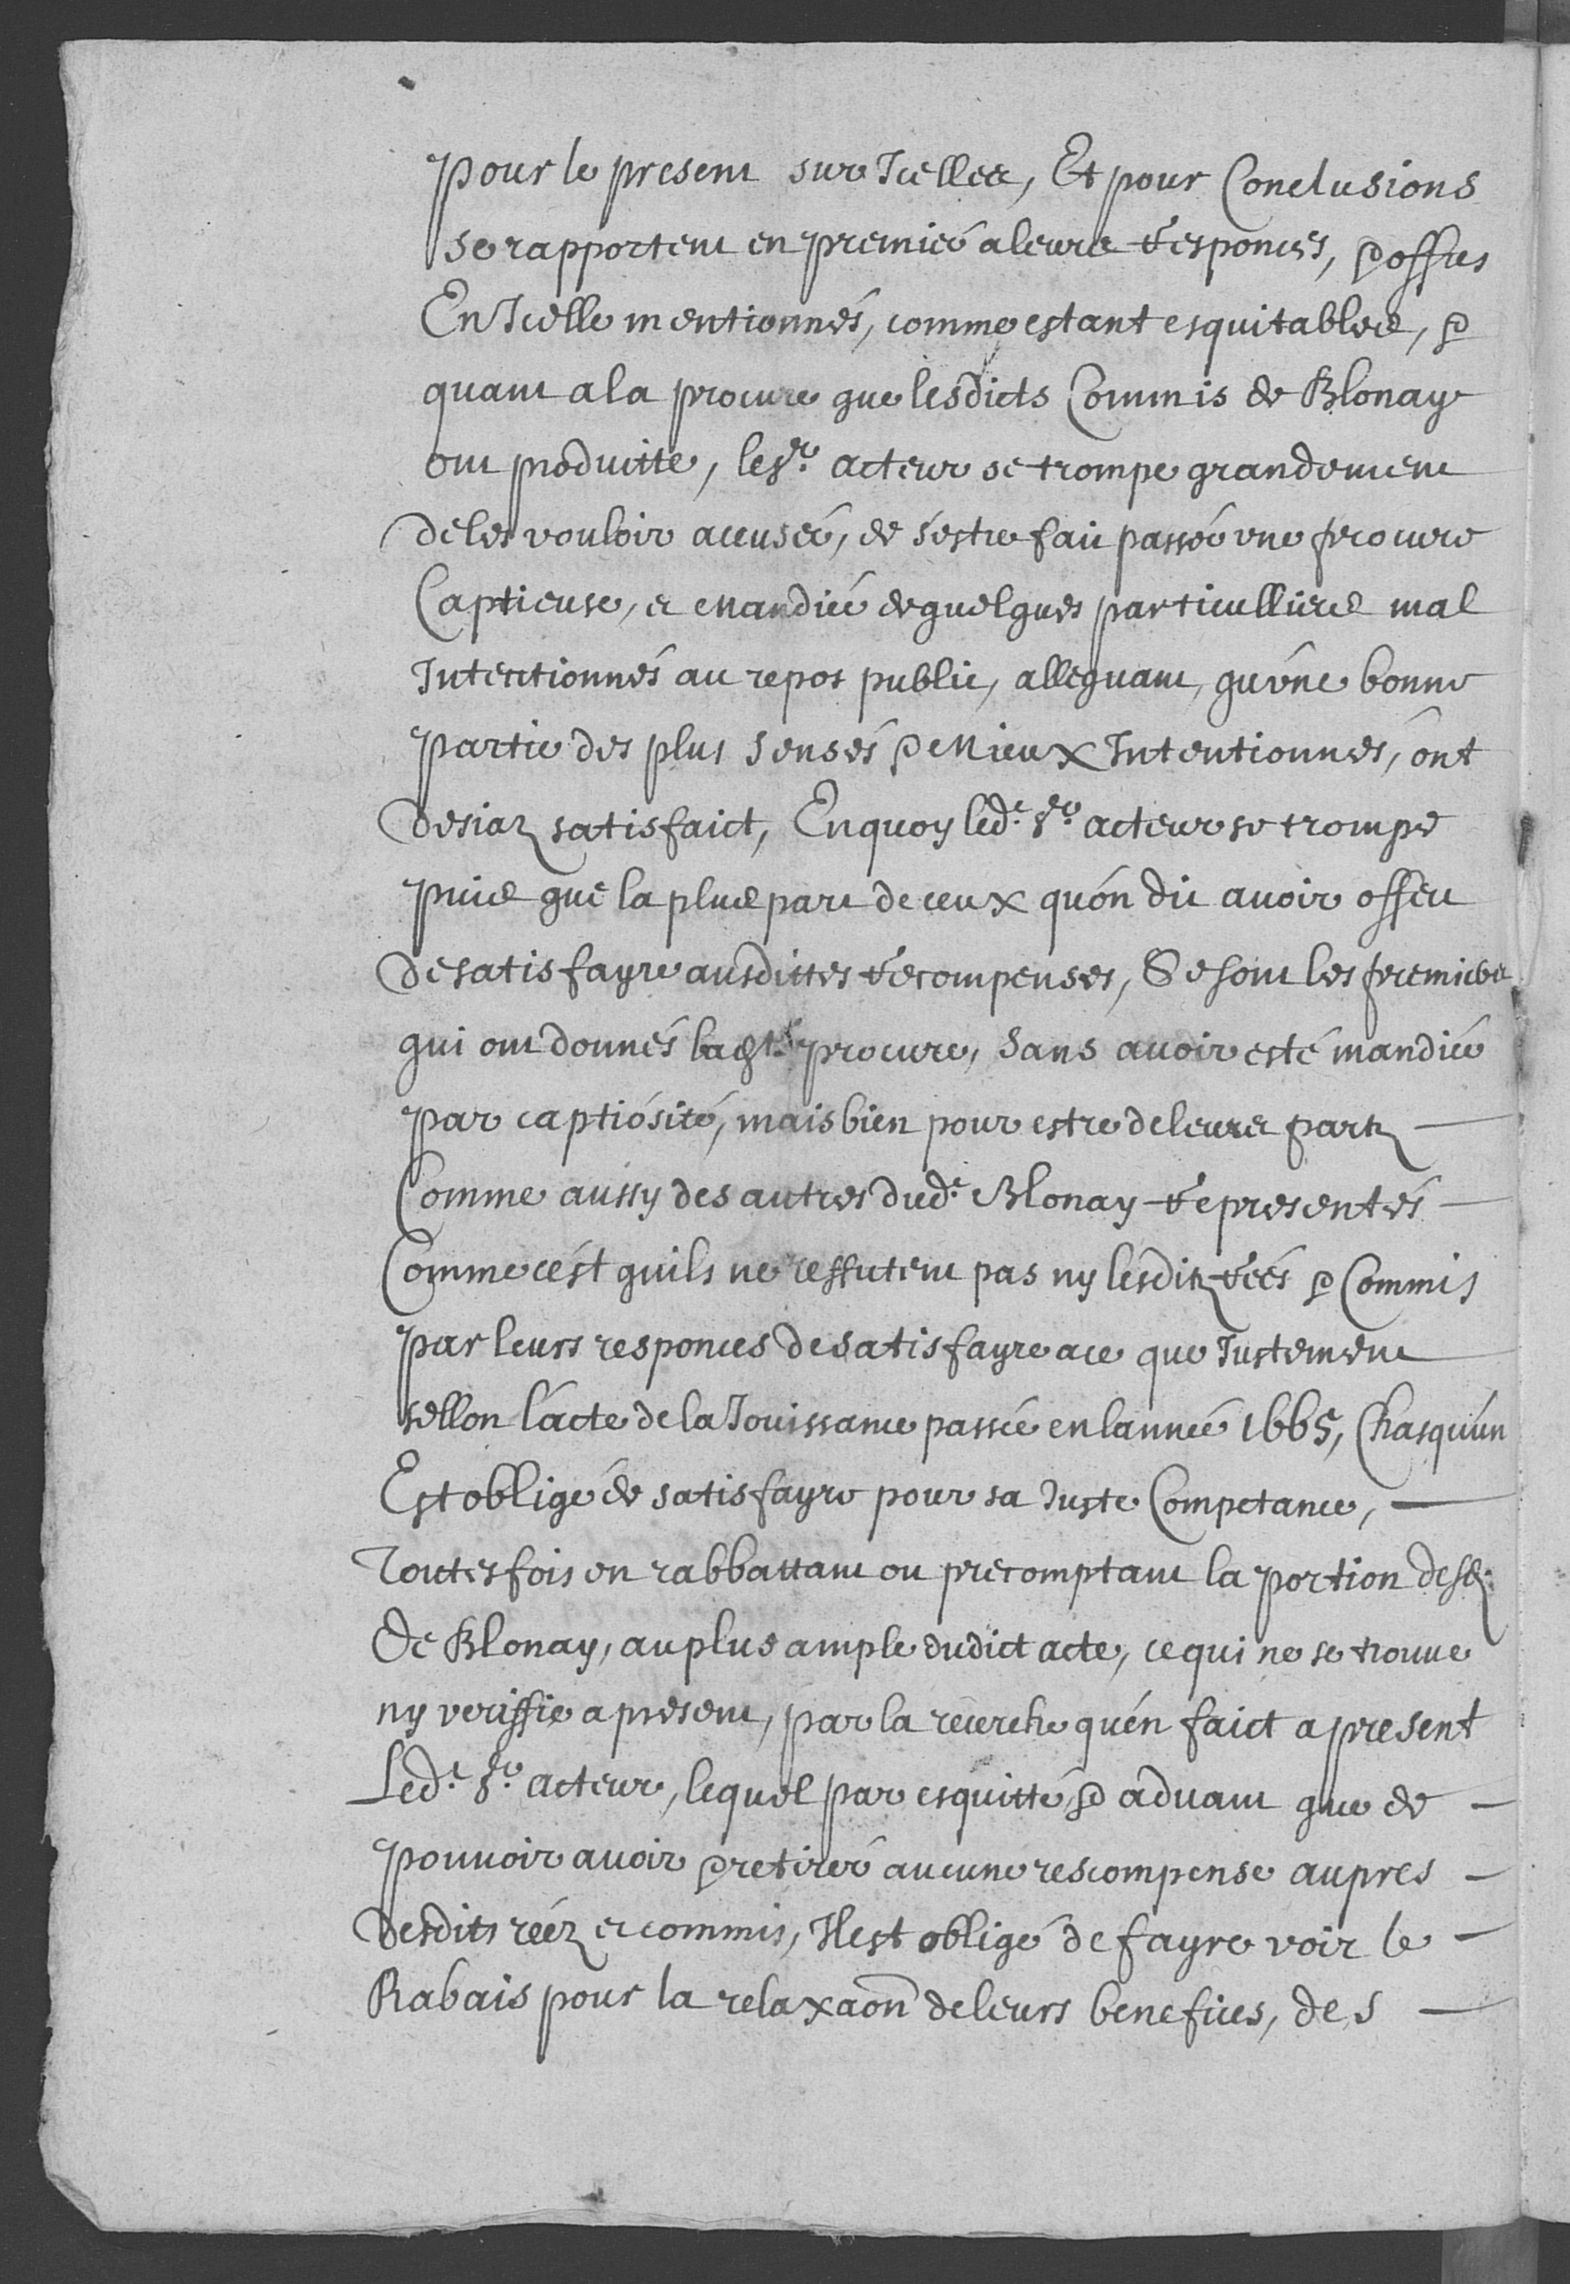 Pour le present sur Icelles, Et pour Conclusions
se rapportent en premier a leurs responces, & offres
En Icelle mentionnés, comme estant esquitables, &
quant a la procure que lesdicts Commis de Blonay
ont produitte, le Sr. acteur se trompe grandement
de les vouloir accuser, de s'estre fait passer une procure
Captieuse, et mandiée de quelques particulliers mal
Intentionnés au repos public, alleguant, qu'vne bonne
partie des plus sensés & mieux Intentionnés, ont
desiaz satisfaict, En quoy led.t Sr. acteur se trompe
puis que la plus part de ceux qu'on dit avoir offert
de satisfayre ausdittes recompenses, Se sont les premiers
qui ont donnés lad.te procure, sans avoir esté mandiée
par captiosité, mais bien pour estre de leurs partz
Comme aussy des autres dud.t Blonay representés
Comme c'est quils ne reffutent pas ny lesditz rées & Commis
par leurs responces de satisfayre a ce que Justement
sellon l'acte de la Jouissance passée en lannée 1665, Chasqu'un
Est obligé de satisfayre pour sa Juste Competance,
Toutesfois en rabbattant ou precomptant la portion desd.
de Blonay, au plus ample dudict acte, ce qui ne se trouve
ny veriffie a present, par la recerche qu'en faict a present
Led.t Sr. acteur, lequel par esquitté, & advant que de
pouvoir avoir & retirer aucune rescompense aupres
desdits réez et commis, Il est obligé de fayre voir le
Rabais pour la relaxaon de leurs benefices, des